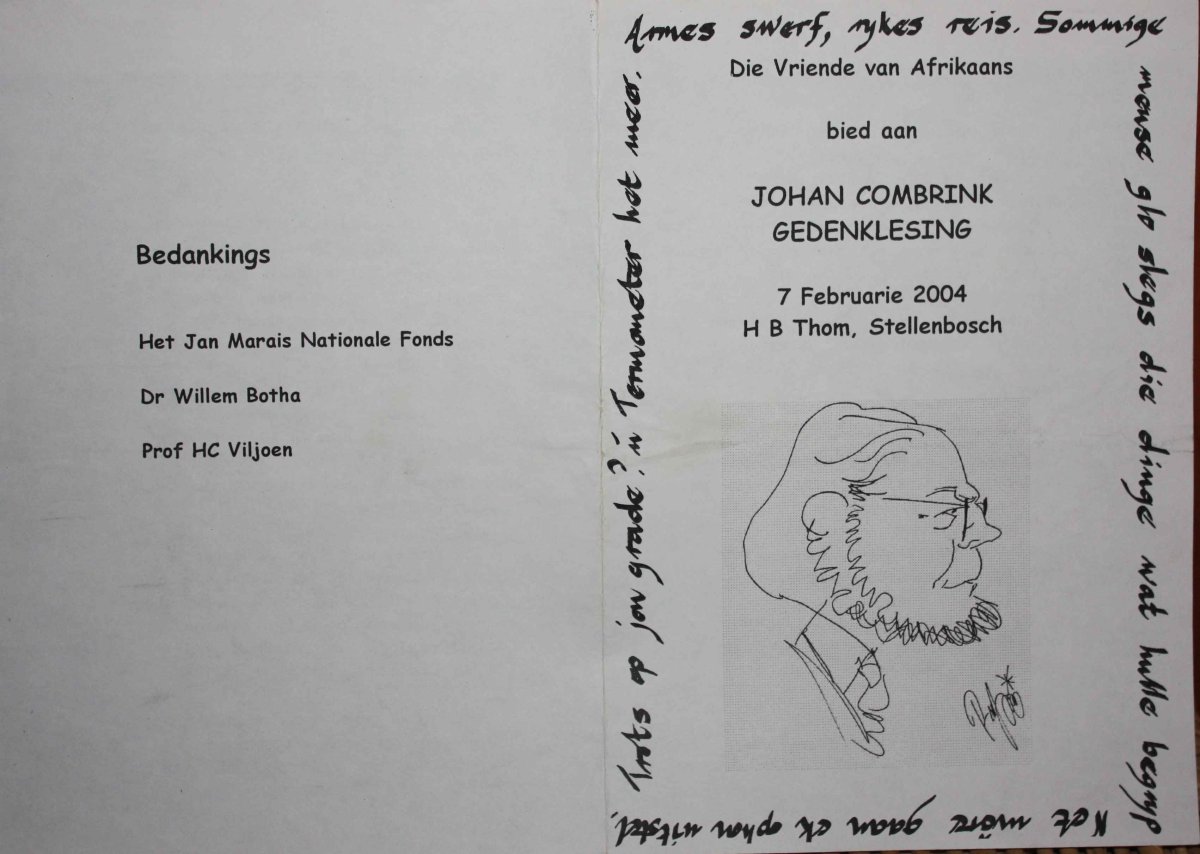 Bedankings
Het Jan Marais Nationale Fonds
Dr Willem Botha
Prof HC Viljoen
Armes swerf, rykes reis. Sommige
mense glo slegs die dinge wat hulle begryp
Net môre gaan ek ophou uitstel.
Trots op jou grade? 'n Termometer het meer.
Die Vriende van Afrikaans
bied aan
JOHAN COMBRINK
GEDENKLESING
7 Februarie 2004
H B Thom, Stellenbosch